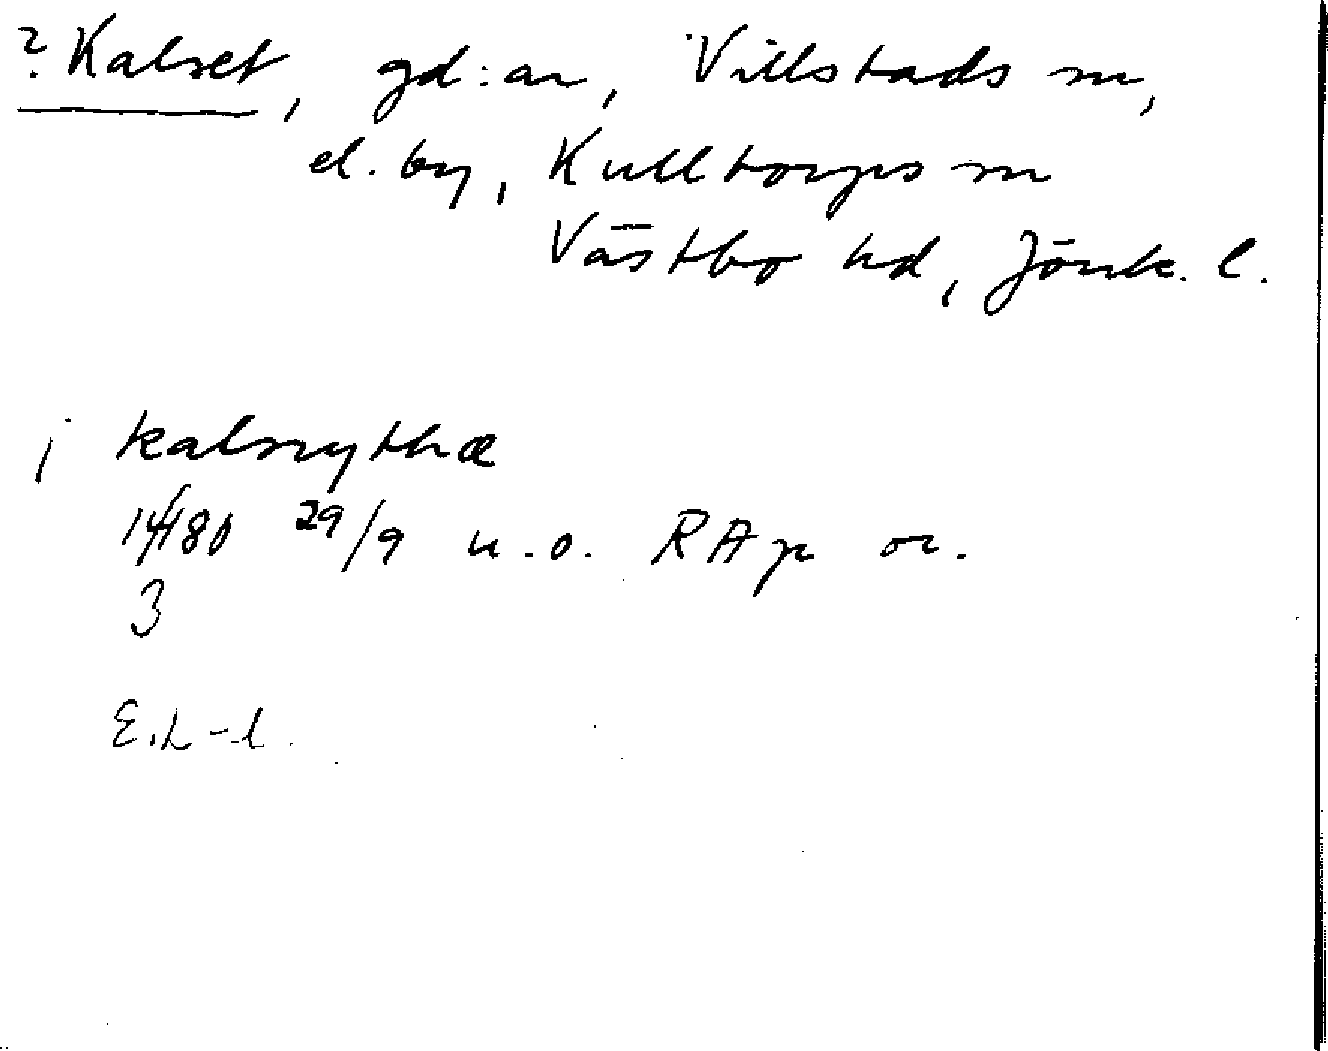 ? Kalset, gd:ar, Villstads sn,
el. by, Kulltorps sn
Västbo hd, Jönk. l.
i kalsrythæ
1480 29/9 u.o. RAp or.
3
E.L-l.